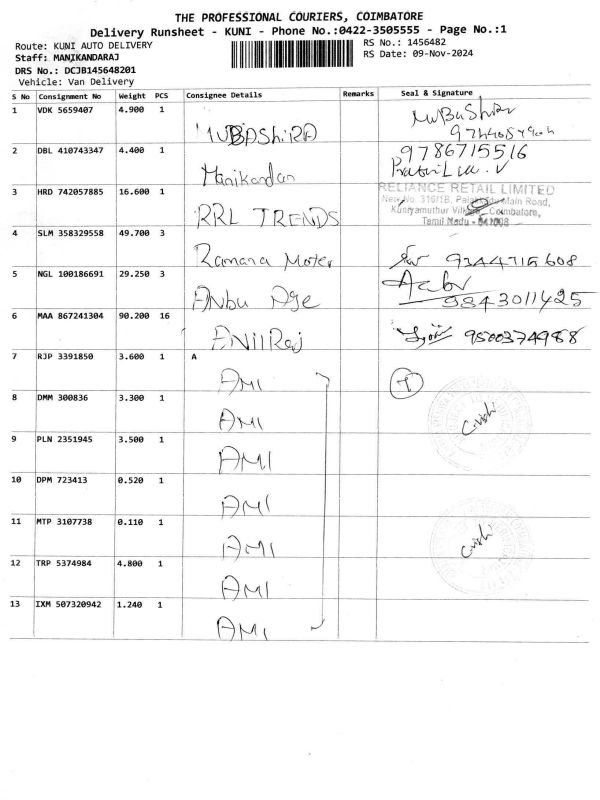 THE PROFESSIONAL COURIERS, COIMBATORE
Delivery Runsheet - KUNI - Phone No.:0422-3505555 - Page No.:1
Route: KUNI AUTO DELIVERY
RS No.: 1456482
Staff: MANIKANDARAJ
RS Date: 09-Nov-2024
DRS No.: DCJB145648201
Vehicle: Van Delivery
S No Consignment No Weight PCS Consignee Details Remarks Seal & Signature
1 VDK 5659407 4.900 1 MUBASHIRA MuBaShiRa
2 DBL 410743347 4.400 1 Manikandan 9786715516
3 HRD 742057885 16.600 1 RRL TRENDS RELIANCE RETAIL LIMITED
New No. 316/1B, Palakkadu Main Road,
Kuniyamuthur Village, Coimbatore,
Tamil Nadu - 641008
4 SLM 358329558 49.700 3 Ramana Moter 9344715608
5 NGL 100186691 29.250 3 ANbu Age 9843011425
6 MAA 867241304 90.200 16 ANilRaj 9500374988
7 RJP 3391850 3.600 1 A AMI 7
8 DMM 300836 3.300 1 AMI
9 PLN 2351945 3.500 1 AMI
10 DPM 723413 0.520 1 AMI
11 MTP 3107738 0.110 1 AMI
12 TRP 5374984 4.800 1 AMI
13 IXM 507320942 1.240 1 AMI